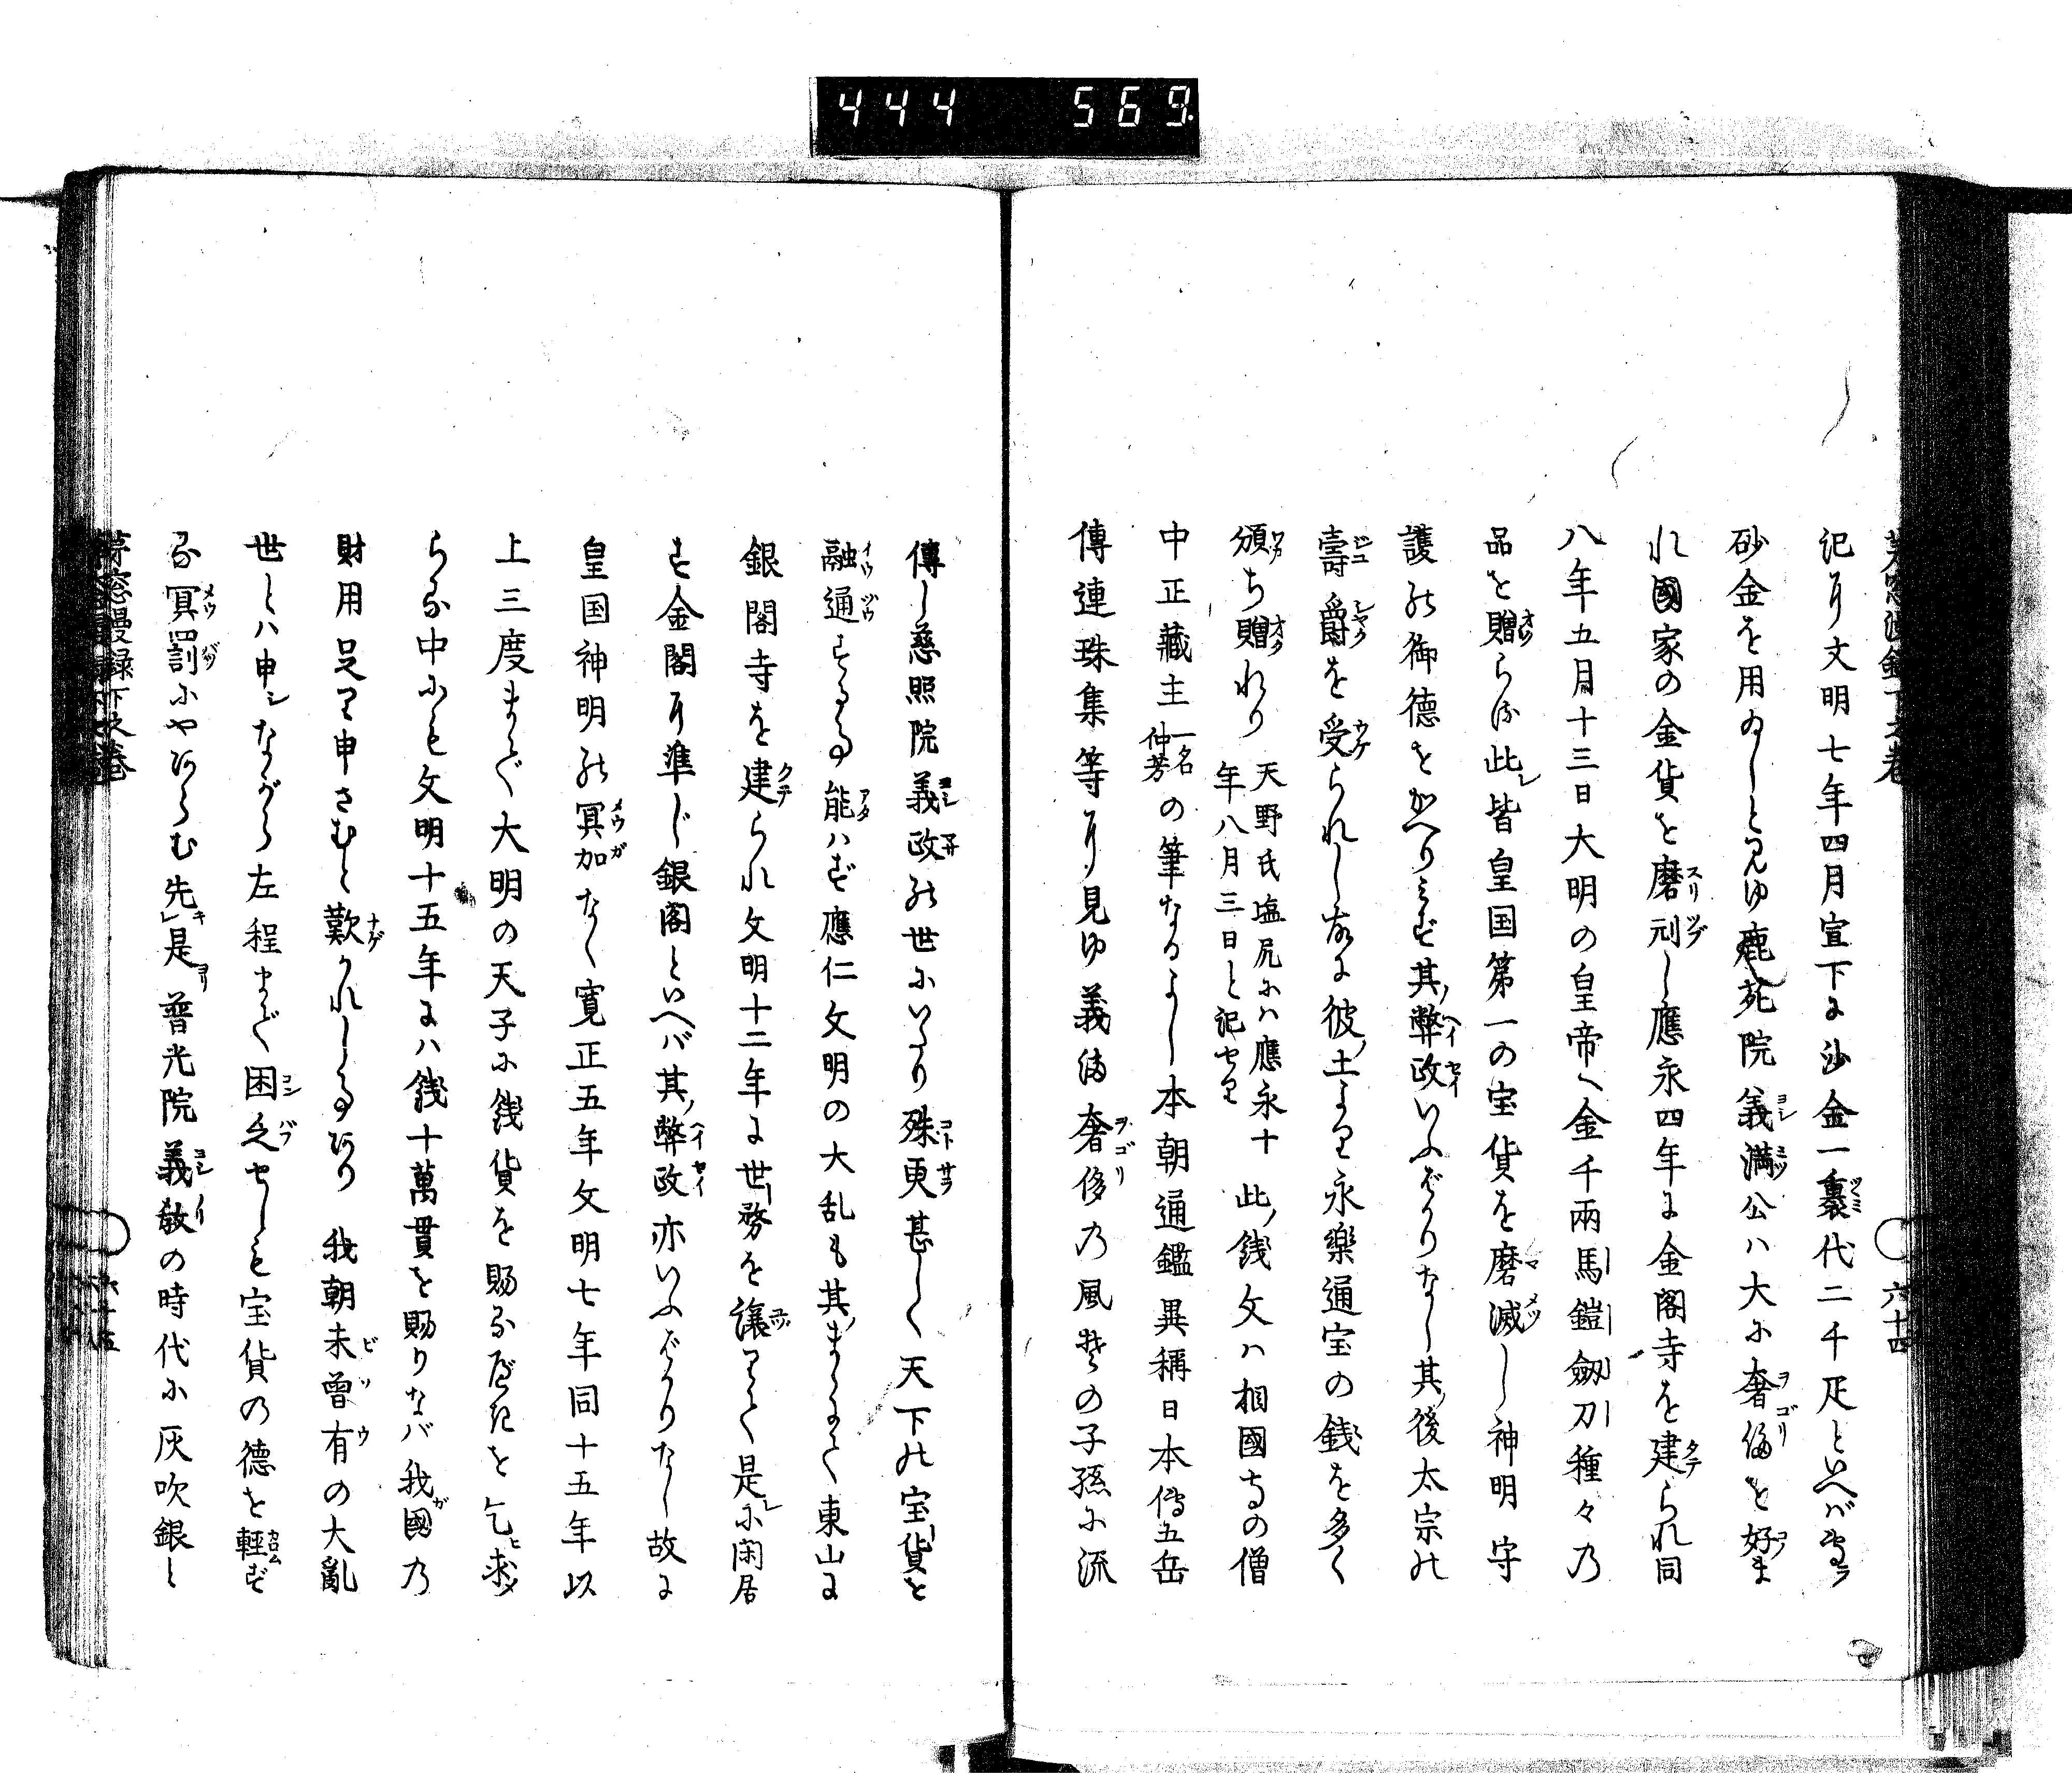 444 569
茅窓漫録下之巻
六十四
記に文明七年四月宣下に沙金一裏代二千疋といへば
砂金を用ゐしと見ゆ鹿苑院義満公ハ大に奢侈を好ま
れ國家の金貨を磨刓し應永四年に金閣寺を建られ同
八年五月十三日大明の皇帝へ金千兩馬鎧劔刀種々の
品を贈らる此レ皆皇国第一の宝貨を磨滅し神明守
護の御徳をかへりミず其ノ弊政いふばかりなし其ノ後太宗の
壽爵を受られし故に彼ノ土より永樂通宝の銭を多く
頒ち贈れり天野氏塩尻にハ應永十年八月三日と記せり此ノ銭文ハ相國寺の僧
中正藏主一名仲芳の筆なるよし本朝通鑑異稱日本傳五岳
傳連珠集等に見ゆ義満奢侈の風其の子孫に流
傳し慈照院義政の世にいたり殊更甚しく天下の宝貨を
融通する事能ハず應仁文明の大乱も其ノまゝにて東山に
銀閣寺を建られ文明十二年に世務を譲りて是レに閑居
す金閣に準じ銀閣といへバ其ノ弊政亦いふばかりなし故に
皇国神明の冥加なく寛正五年文明七年同十五年以
上三度まで大明の天子に銭貨を賜るべきを乞ヒ求メ
らる中にも文明十五年にハ銭十萬貫を賜りなバ我國の
財用足り申さむと歎かれし事あり我朝未曾有の大亂
世とハ申シながら左程まで困乏せしも宝貨の徳を輕ず
る冥罰にやあらむ先キ是ヨリ普光院義教の時代に灰吹銀と
茅窓漫録下之巻
六十五